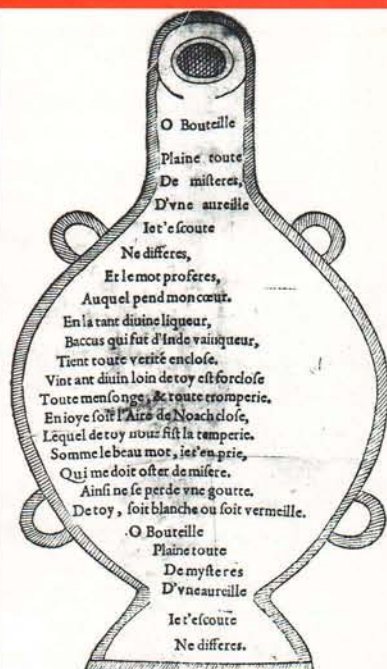 O Bouteille
Plaine toute
De misteres,
D'vne aureille
Iet'escoute
Ne differes,
Et le mot proferes,
Auquel pend mon cœur.
En la tant diuine liqueur,
Baccus qui fut d'Inde vainqueur,
Tient toute verité enclose.
Vint ant diuin loin de toy est forclose
Toute mensonge, & toute tromperie.
En ioye soit l'Aire de Noach close,
Lequel de toy nous fist la temperie.
Somme le beau mot, iet'en prie,
Qui me doit oster de misere.
Ainsi ne se perde vne goutte.
De toy, soit blanche ou soit vermeille.
O Bouteille
Plaine toute
De mysteres
D'vne aureille
Iet'escoute
Ne differes.